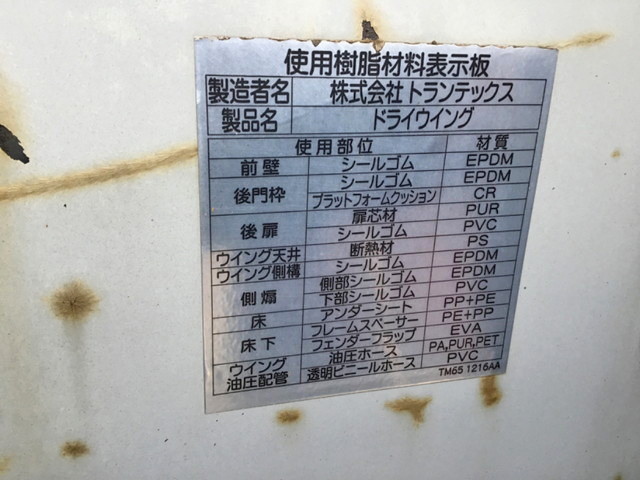 使用樹脂材料表示板
製造者名 株式会社トランテックス
製品名 ドライウイング
使用部位 材質
前壁 シールゴム EPDM
後門枠 シールゴム EPDM
プラットフォームクッション CR
後扉 扉芯材 PUR
シールゴム PVC
ウイング天井 断熱材 PS
ウイング側構 シールゴム EPDM
側煽 側部シールゴム EPDM
下部シールゴム PVC
床 アンダーシート PP+PE
床下 フレームスペーサー PE+PP
フェンダーフラップ EVA
ウイング油圧配管 油圧ホース PA,PUR,PET
透明ビニールホース PVC
TM65 1216AA